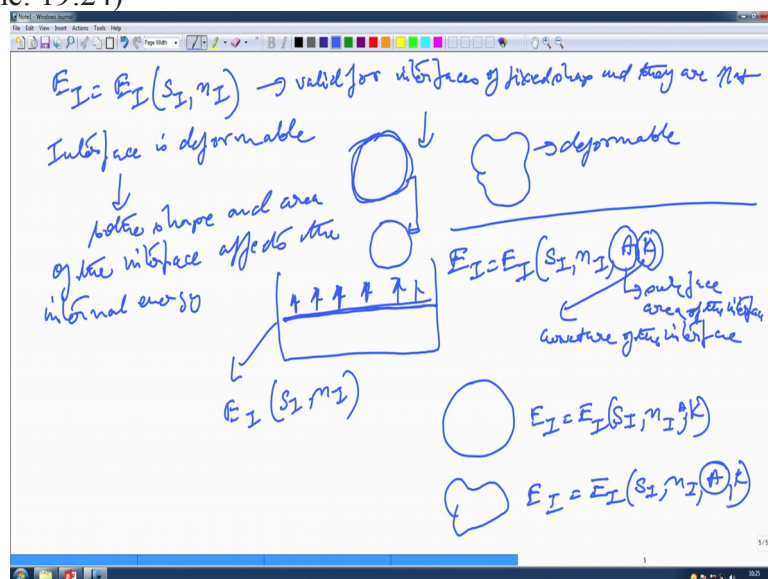 ne: 19:24)
Note1 - Windows Journal
File Edit View Insert Actions Tools Help
Page Width
B I
E_I = E_I (S_I, n_I) → valid for interfaces of fixed shap and they are not
Interface is deformable
→ deformable
both shape and area
of the interface affects the
internal energy
E_I = E_I (S_I, n_I, A, K)
surface
area of the interface
curvature of the interface
E_I (S_I, n_I)
E_I = E_I (S_I, n_I, A, K)
E_I = E_I (S_I, n_I, A, K)
5/5
5
10:25